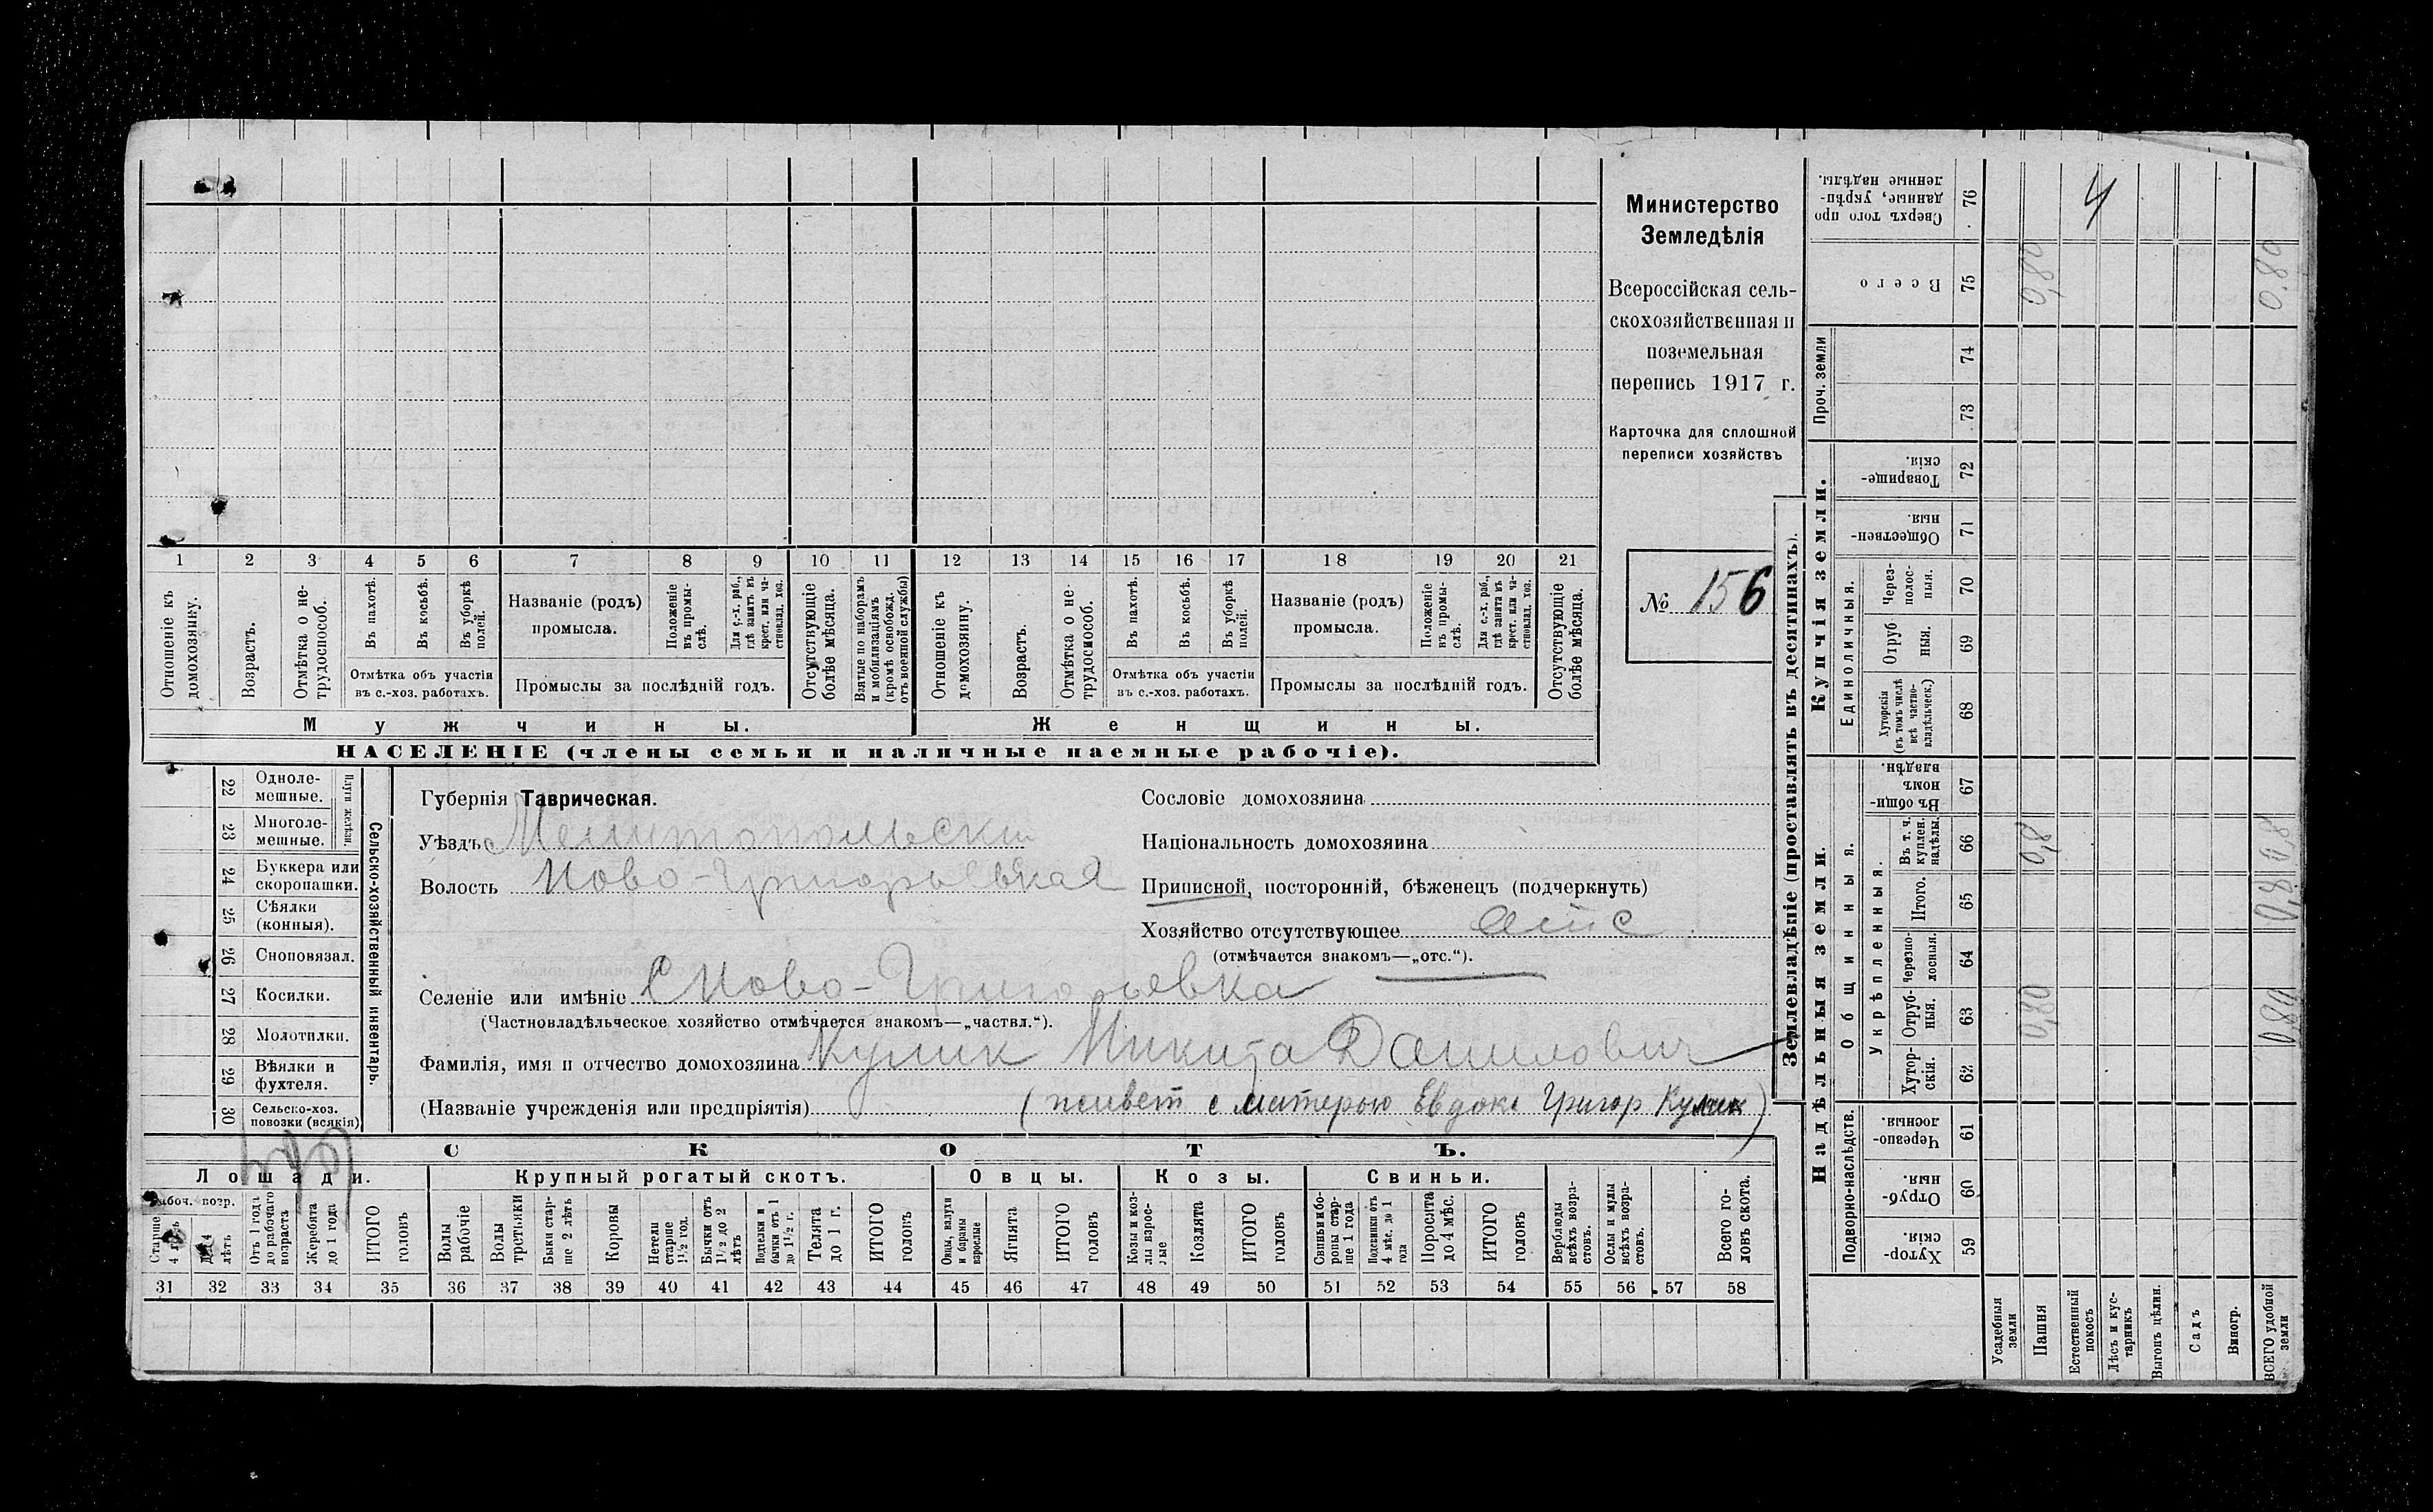 Министерство
Земледѣлія
Всероссійская сель-
скохозяйственная и
поземельная
перепись 1917 г.
Карточка для сплошной
переписи хозяйствъ
№ 156
1 2 3 4 5 6 7 8 9 10 11 12 13 14 15 16 17 18 19 20 21
Отношеніе къ домохозяину.
Возрастъ.
Отмѣтка о не-трудоспособ.
Въ пахотѣ.
Въ косьбѣ.
Въ уборкѣ полей.
Отмѣтка объ участіи
въ с.-хоз. работахъ.
Названіе (родъ)
промысла.
Положеніе въ промы-слѣ.
Для с.-х. раб., гдѣ занятъ въ крест. или ча-стновлад. хоз.
Промыслы за послѣдній годъ.
Отсутствующіе болѣе мѣсяца.
Взятые по наборамъ и мобилизаціямъ (кромѣ освобожд. отъ военной службы)
Отношеніе къ домохозяину.
Возрастъ.
Отмѣтка о не-трудоспособ.
Въ пахотѣ.
Въ косьбѣ.
Въ уборкѣ полей.
Отмѣтка объ участіи
въ с.-хоз. работахъ.
Названіе (родъ)
промысла.
Положеніе въ промы-слѣ.
Для с.-х. раб., гдѣ занята въ крест. или ча-стновлад. хоз.
Промыслы за послѣдній годъ.
Отсутствующіе болѣе мѣсяца.
Мужчины.
Женщины.
НАСЕЛЕНІЕ (члены семьи и наличные наемные рабочіе).
22 Одноле-мешные.
23 Многоле-мешные.
Плуги желѣзн.
24 Буккера или скоропашки.
25 Сѣялки (конныя).
26 Сноповязал.
27 Косилки.
28 Молотилки.
29 Вѣялки и фухтеля.
30 Сельско-хоз. повозки (всякія)
Сельско-хозяйственный инвентарь.
Губернія Таврическая.
Уѣздъ Мелитопольскій
Волость Ново-Григорьевская
Сословіе домохозяина
Національность домохозяина
Приписной, посторонній, бѣженецъ (подчеркнуть)
Хозяйство отсутствующее отс
(отмѣчается знакомъ—„отс.“).
Селеніе или имѣніе С Ново-Григорьевка
(Частновладѣльческое хозяйство отмѣчается знакомъ—„частвл.“).
Фамилія, имя и отчество домохозяина Кулик Микита Данилович
(Названіе учрежденія или предпріятія) (живет с матерью Евдокі Григор Кулик)
СКОТЪ.
Лошади.
Крупный рогатый скотъ.
Овцы.
Козы.
Свиньи.
Рабоч. возр.
Старше 4 лѣтъ
До 4 лѣтъ
Отъ 1 года до рабочаго возраста
Жеребята до 1 года
ИТОГО головъ
Волы рабочіе
Волы третьяки
Быки стар-ше 2 лѣтъ
Коровы
Нетели старше 1½ год.
Бычки отъ 1½ до 2 лѣтъ
Подтелки и бычки отъ 1 до 1½ г.
Телята до 1 г.
ИТОГО головъ
Овцы, валухи и бараны взрослые
Ягнята
ИТОГО головъ
Козы и коз-лы взрос-лые
Козлята
ИТОГО головъ
Свиньи и бо-ровы стар-ше 1 года
Подсвинки отъ 4 мѣс. до 1 года
Поросята до 4 мѣс.
ИТОГО головъ
Верблюды всѣхъ возра-стовъ.
Ослы и мулы всѣхъ возра-стовъ.
Всего го-ловъ скота.
31 32 33 34 35 36 37 38 39 40 41 42 43 44 45 46 47 48 49 50 51 52 53 54 55 56 57 58
Землевладѣніе (проставлять въ десятинахъ).
Купчія земли.
Надѣльныя земли.
Проч. земли
Единоличныя.
Общинныя.
Укрѣпленныя.
Подворно-наслѣдств.
Сверхъ того про данные, укрѣп-ленные надѣлы. 76 4
Всего 75 0,80 0.80
74
73
Товарище-скія. 72
Обществен-ныя. 71
Через-полос-ныя. 70
Отруб ныя. 69
Хуторскія (въ томъ числѣ всѣ частно-владѣльческ.) 68
Въ общи-номъ владѣн. 67
Въ т. ч. куплен. надѣлы. 66 0,8 0,8
Итого. 65 0,8
Черезпо-лосныя. 64
Отруб-ныя. 63 0,80 0,80
Хутор-скія. 62
Черезпо-лосныя. 61
Отруб-ныя. 60
Хутор-скія. 59
Усадебныя земли
Пашня
Естественный покосъ
Лѣсъ и кус-тарникъ
Выгонъ цѣлин.
Садъ
Виногр.
ВСЕГО удобной земли